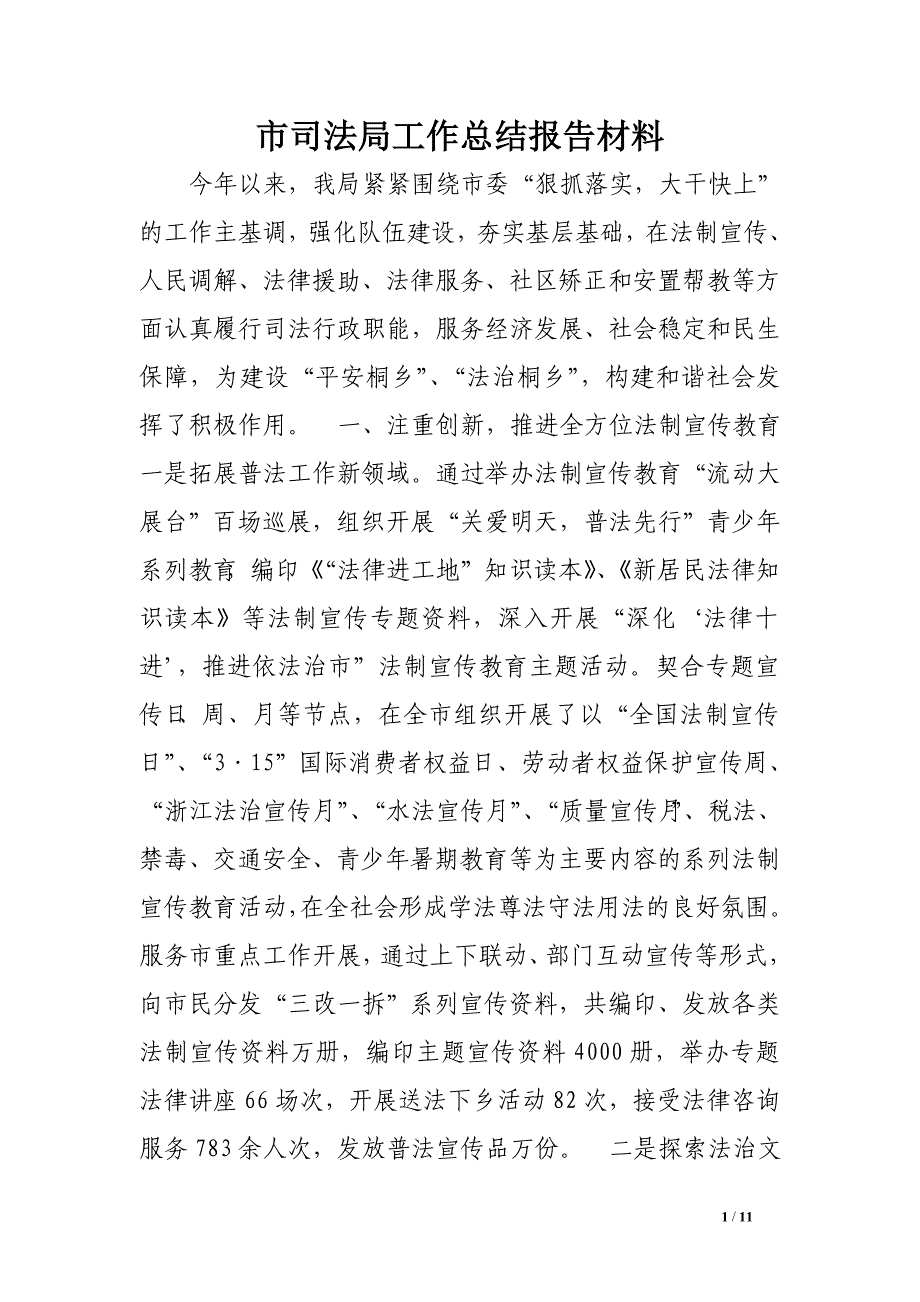 市司法局工作总结报告材料
今年以来，我局紧紧围绕市委“狠抓落实，大干快上”
的工作主基调，强化队伍建设，夯实基层基础，在法制宣传、
人民调解、法律援助、法律服务、社区矫正和安置帮教等方
面认真履行司法行政职能，服务经济发展、社会稳定和民生
保障，为建设“平安桐乡”、“法治桐乡”，构建和谐社会发
挥了积极作用。 一、注重创新，推进全方位法制宣传教育
一是拓展普法工作新领域。通过举办法制宣传教育“流动大
展台”百场巡展，组织开展“关爱明天，普法先行”青少年
系列教育，编印《“法律进工地”知识读本》、《新居民法律知
识读本》等法制宣传专题资料，深入开展“深化‘法律十
进’，推进依法治市”法制宣传教育主题活动。契合专题宣
传日、周、月等节点，在全市组织开展了以“全国法制宣传
日”、“3·15”国际消费者权益日、劳动者权益保护宣传周、
“浙江法治宣传月”、“水法宣传月”、“质量宣传月”、税法、
禁毒、交通安全、青少年暑期教育等为主要内容的系列法制
宣传教育活动，在全社会形成学法尊法守法用法的良好氛围。
服务市重点工作开展，通过上下联动、部门互动宣传等形式，
向市民分发“三改一拆”系列宣传资料，共编印、发放各类
法制宣传资料万册，编印主题宣传资料 4000 册，举办专题
法律讲座 66 场次，开展送法下乡活动 82 次，接受法律咨询
服务 783 余人次，发放普法宣传品万份。 二是探索法治文
1 / 11